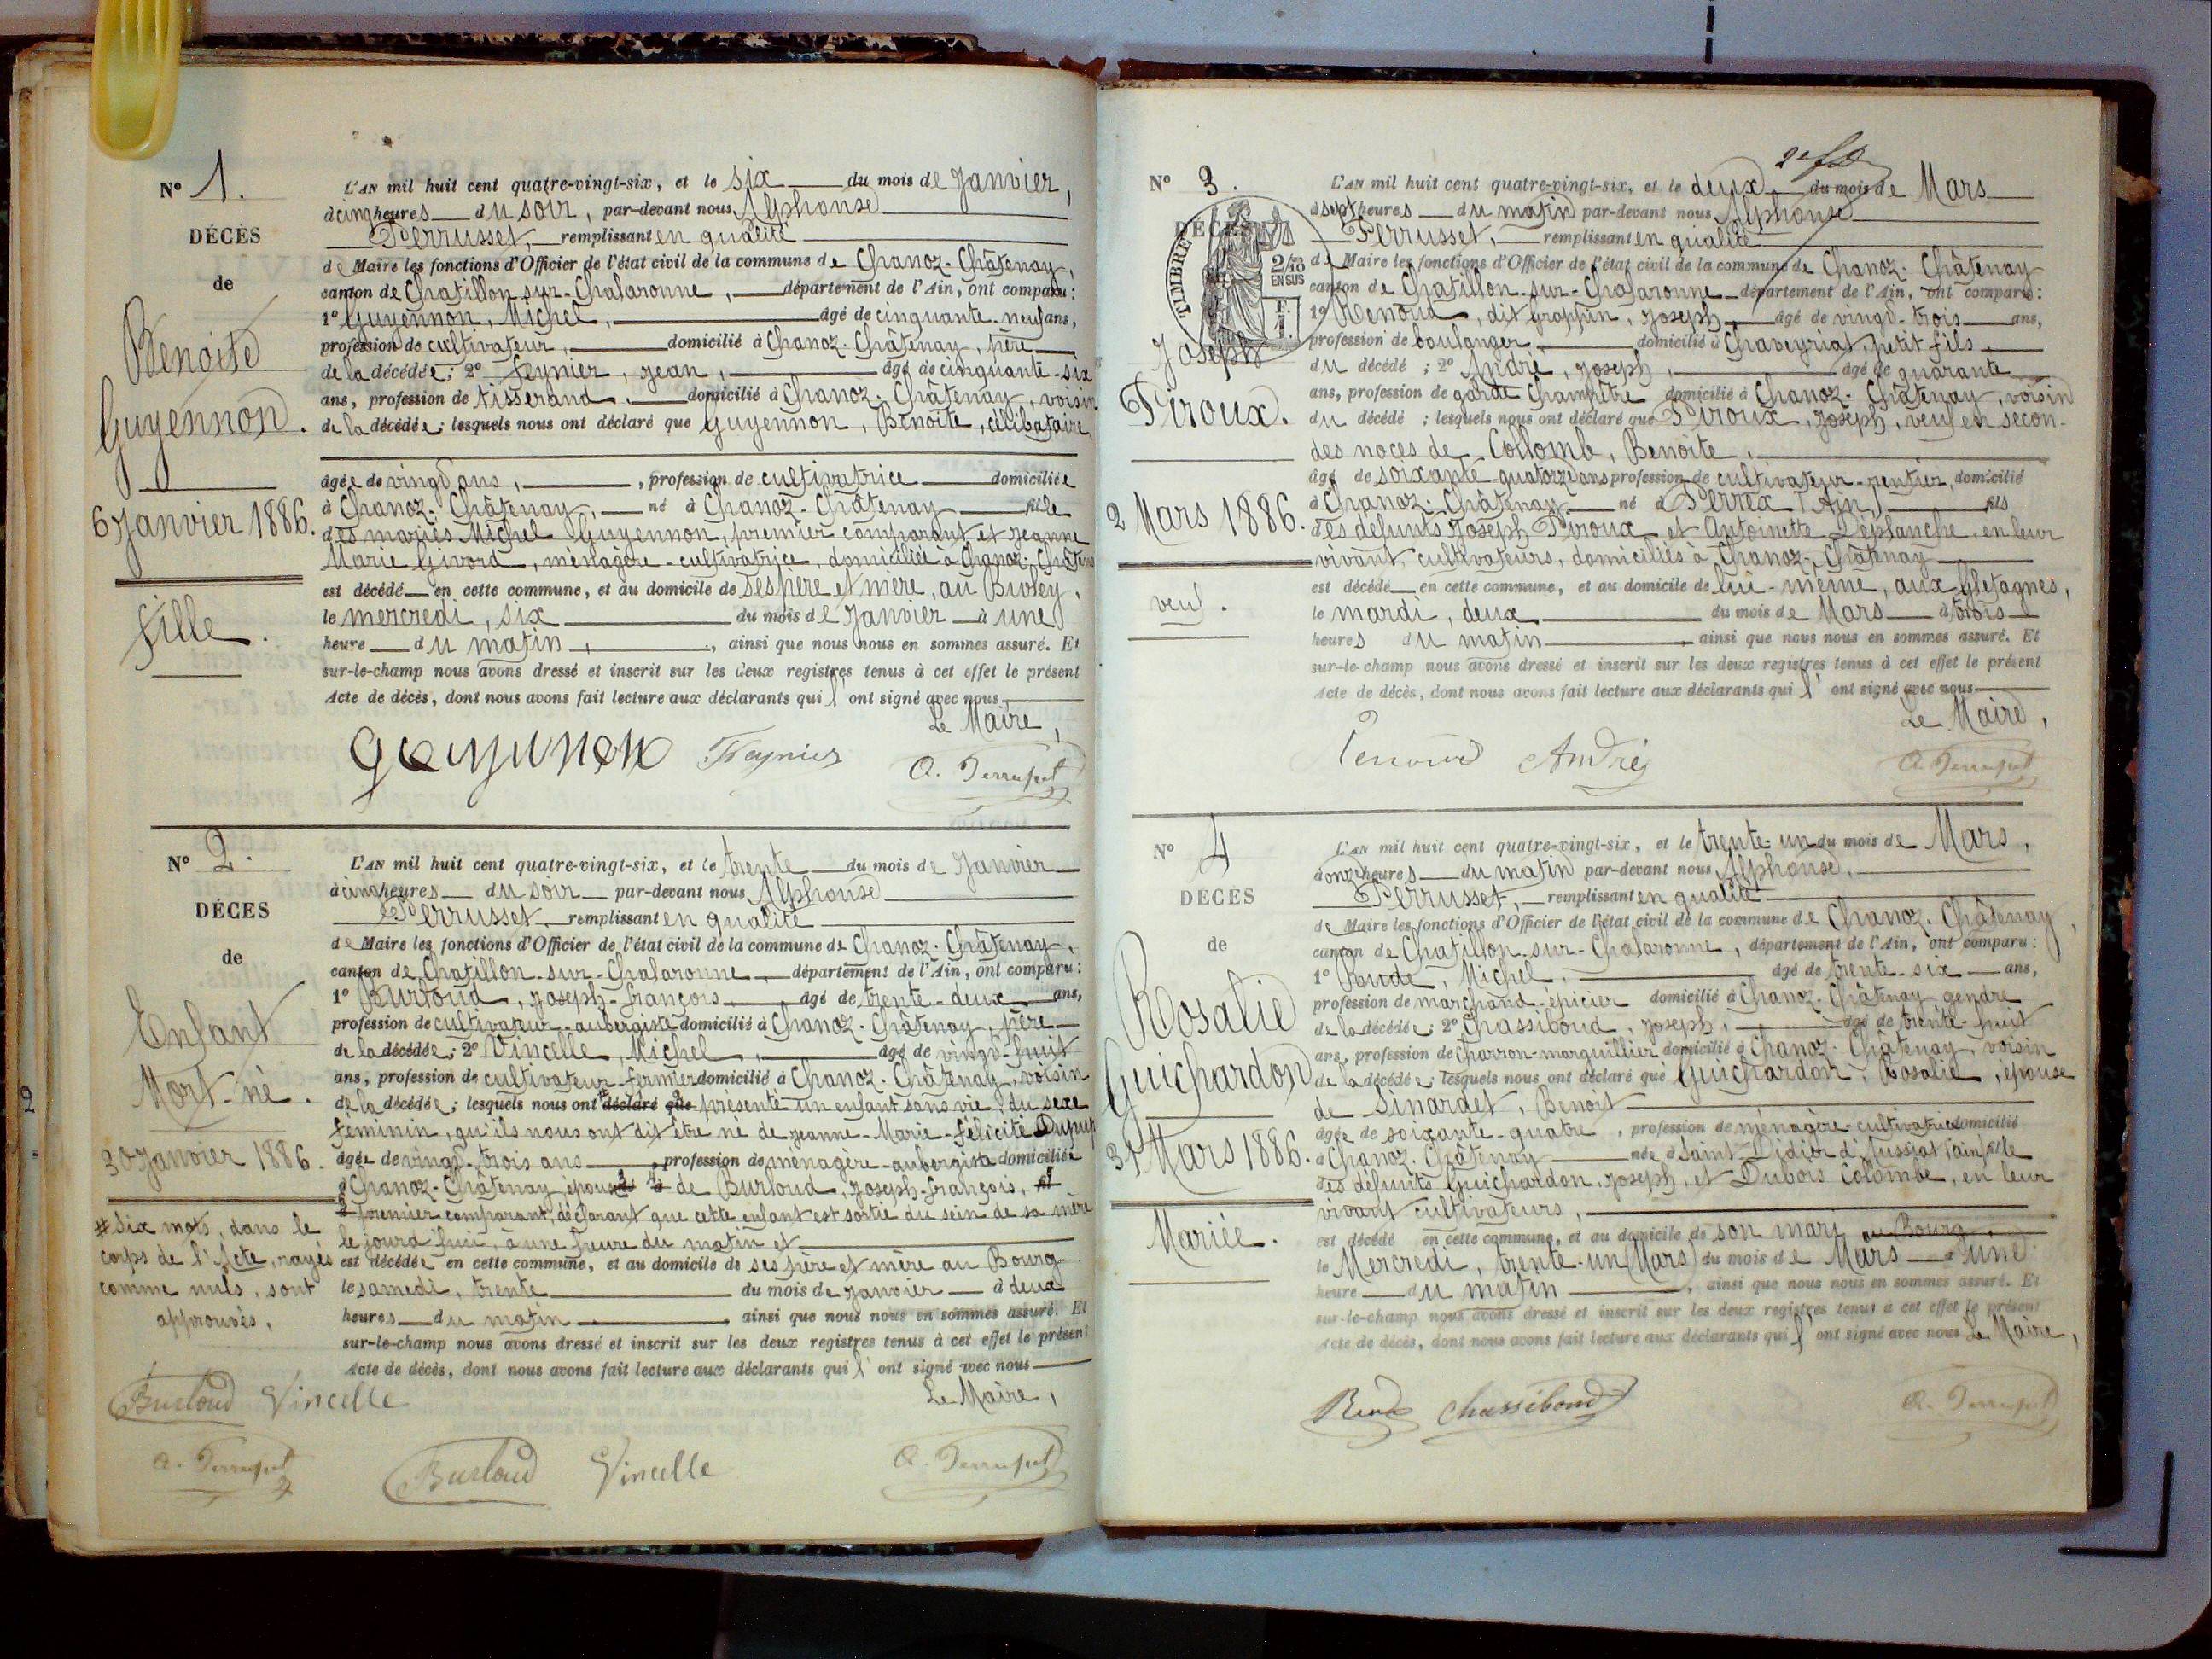 N° 1.
DÉCÈS
de
Benoite
Guyennon.
6 Janvier 1886.
fille.
L'AN mil huit cent quatre-vingt-six, et le six du mois de Janvier,
à cinq heures du soir, par-devant nous Alphonse
Perrusset, remplissant en qualité
de Maire les fonctions d'Officier de l'état civil de la commune de Chanoz-Châtenay,
canton de Chatillon-sur-Chalaronne, département de l'Ain, ont comparu:
1° Guyennon, Michel, âgé de cinquante-neuf ans,
profession de cultivateur, domicilié à Chanoz-Châtenay, père
de la décédée; 2° Feynier, Jean, âgé de cinquante-six
ans, profession de tisserand, domicilié à Chanoz-Châtenay, voisin
de la décédée; lesquels nous ont déclaré que Guyennon, Benoite, célibataire,
âgée de vingt ans, profession de cultivatrice domiciliée
à Chanoz-Châtenay, né à Chanoz-Châtenay fille
des mariés Michel Guyennon, premier comparant et Jeanne
Marie Givord, ménagère-cultivatrice, domiciliée à Chanoz-Châtenay
est décédé en cette commune, et au domicile de ses père et mère, au
le mercredi, six du mois de Janvier à une
heure du matin, ainsi que nous nous en sommes assuré. Et
sur-le-champ nous avons dressé et inscrit sur les deux registres tenus à cet effet le présent
Acte de décès, dont nous avons fait lecture aux déclarants qui l'ont signé avec nous.
Le Maire,
Guyennon Feynier A. Perrusset
N° 2.
DÉCES
de
Enfant
Mort-né.
30 Janvier 1886.
# Six mots, dans le
corps de l'Acte, rayés
comme nuls, sont
approuvés,
Burloud Vincelle
A. Perrusset
L'AN mil huit cent quatre-vingt-six, et le trente du mois de Janvier
à cinq heures du soir par-devant nous Alphonse
Perrusset, remplissant en qualité
de Maire les fonctions d'Officier de l'état civil de la commune de Chanoz-Châtenay,
canton de Chatillon-sur-Chalaronne, département de l'Ain, ont comparu:
1° Burloud, Joseph-François, âgé de trente-deux ans,
profession de cultivateur-aubergiste domicilié à Chanoz-Châtenay, père
de la décédée; 2° Vincelle, Michel, âgé de vingt-huit
ans, profession de cultivateur-fermier domicilié à Chanoz-Châtenay, voisin
de la décédée; lesquels nous ont déclaré que présenté un enfant sans vie, du sexe
féminin, qu'ils nous ont dit être né de Jeanne-Marie-Félicité Dupuy
âgée de vingt-trois ans, profession de ménagère-aubergiste domiciliée
à Chanoz-Châtenay, épouse de Burloud, Joseph-François,
premier comparant, déclarant que cette enfant est sortie du sein de sa mère
le jourd'hui, à une heure du matin et
est décédée en cette commune, et au domicile de ses père et mère au Bourg
le samedi, trente du mois de Janvier à deux
heures du matin ainsi que nous nous en sommes assuré. Et
sur-le-champ nous avons dressé et inscrit sur les deux registres tenus à cet effet le présent
Acte de décès, dont nous avons fait lecture aux déclarants qui l'ont signé avec nous
Le Maire,
Burloud Vincelle A. Perrusset
N° 3.
DÉCÈS
TIMBRE
2/10
EN SUS
Joseph
Piroux.
2 Mars 1886.
veuf.
L'AN mil huit cent quatre-vingt-six, et le deux du mois de Mars
à sept heures du matin par-devant nous Alphonse
Perrusset, remplissant en qualité
de Maire les fonctions d'Officier de l'état civil de la commune de Chanoz-Châtenay
canton de Chatillon-sur-Chalaronne département de l'Ain, ont comparu:
1° Renoud, dit grappin, Joseph, âgé de vingt-trois ans,
profession de boulanger, domicilié à Chaveyriat, petit fils
du décédé; 2° André, Joseph, âgé de quarante
ans, profession de garde champêtre domicilié à Chanoz-Châtenay, voisin
du décédé; lesquels nous ont déclaré que Piroux, Joseph, veuf en secon-
des noces de Collomb, Benoite,
âgé de soixante-quatorze ans profession de cultivateur-rentier, domicilié
à Chanoz-Châtenay né à Perrex (Ain) fils
des défunts Joseph Piroux et Antoinette Déplanche, en leur
vivant cultivateurs, domiciliés à Chanoz-Châtenay
est décédé en cette commune, et au domicile de lui-même, aux
le mardi, deux du mois de Mars à trois
heures du matin ainsi que nous nous en sommes assuré. Et
sur-le-champ nous avons dressé et inscrit sur les deux registres tenus à cet effet le présent
Acte de décès, dont nous avons fait lecture aux déclarants qui l'ont signé avec nous
Le Maire,
Renoud André A. Perrusset
N° 4
DÉCÈS
de
Rosalie
Guichardon
31 Mars 1886.
Mariée.
L'AN mil huit cent quatre-vingt-six, et le trente-un du mois de Mars,
à onze heures du matin par-devant nous Alphonse,
Perrusset, remplissant en qualité
de Maire les fonctions d'Officier de l'état civil de la commune de Chanoz-Châtenay
canton de Chatillon-sur-Chalaronne, département de l'Ain, ont comparu:
1° Rude, Michel, âgé de trente-six ans,
profession de marchand-épicier domicilié à Chanoz-Châtenay gendre
de la décédée; 2° Chassiboud, Joseph, âgé de trente-huit
ans, profession de charron-marguillier domicilié à Chanoz-Châtenay, voisin
de la décédée; lesquels nous ont déclaré que Guichardon, Rosalie, épouse
de Sinardet, Benoit
âgée de soixante-quatre, profession de ménagère-cultivatrice domicilié
à Chanoz-Châtenay née à Saint Didier d'Aussiat (Ain) fille
des défunts Guichardon, Joseph, et Dubois Colombe, en leur
vivant cultivateurs,
est décédé en cette commune, et au domicile de son mari, au Bourg,
le Mercredi, trente-un (Mars) du mois de Mars à une
heure du matin, ainsi que nous nous en sommes assuré. Et
sur-le-champ nous avons dressé et inscrit sur les deux registres tenus à cet effet le présent
Acte de décès, dont nous avons fait lecture aux déclarants qui l'ont signé avec nous Le Maire,
Rude Chassiboud A. Perrusset